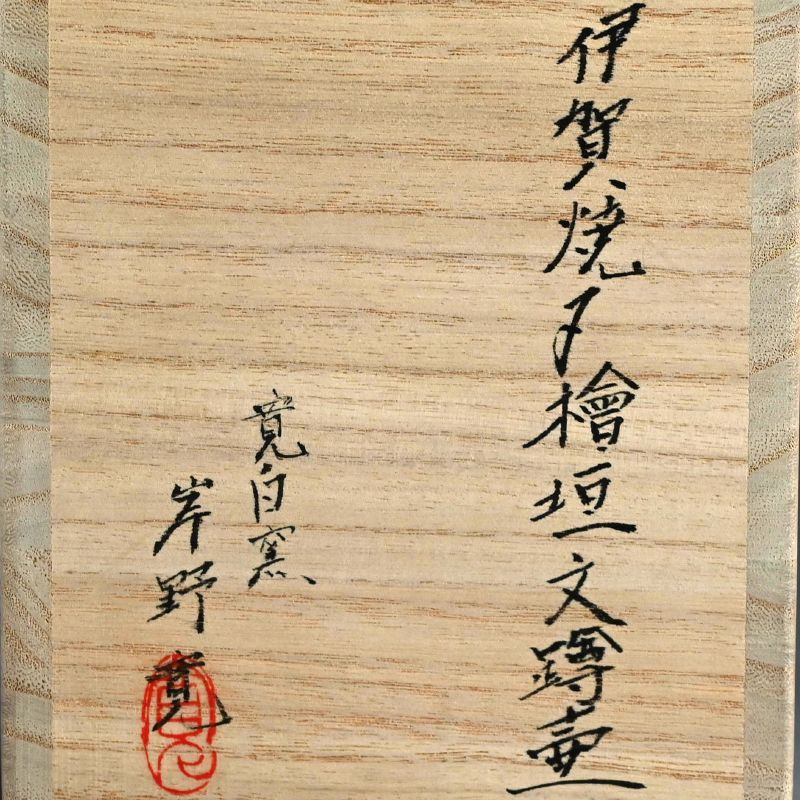 伊賀焼〆檜垣文蹲壷
寛白窯
岸野寛